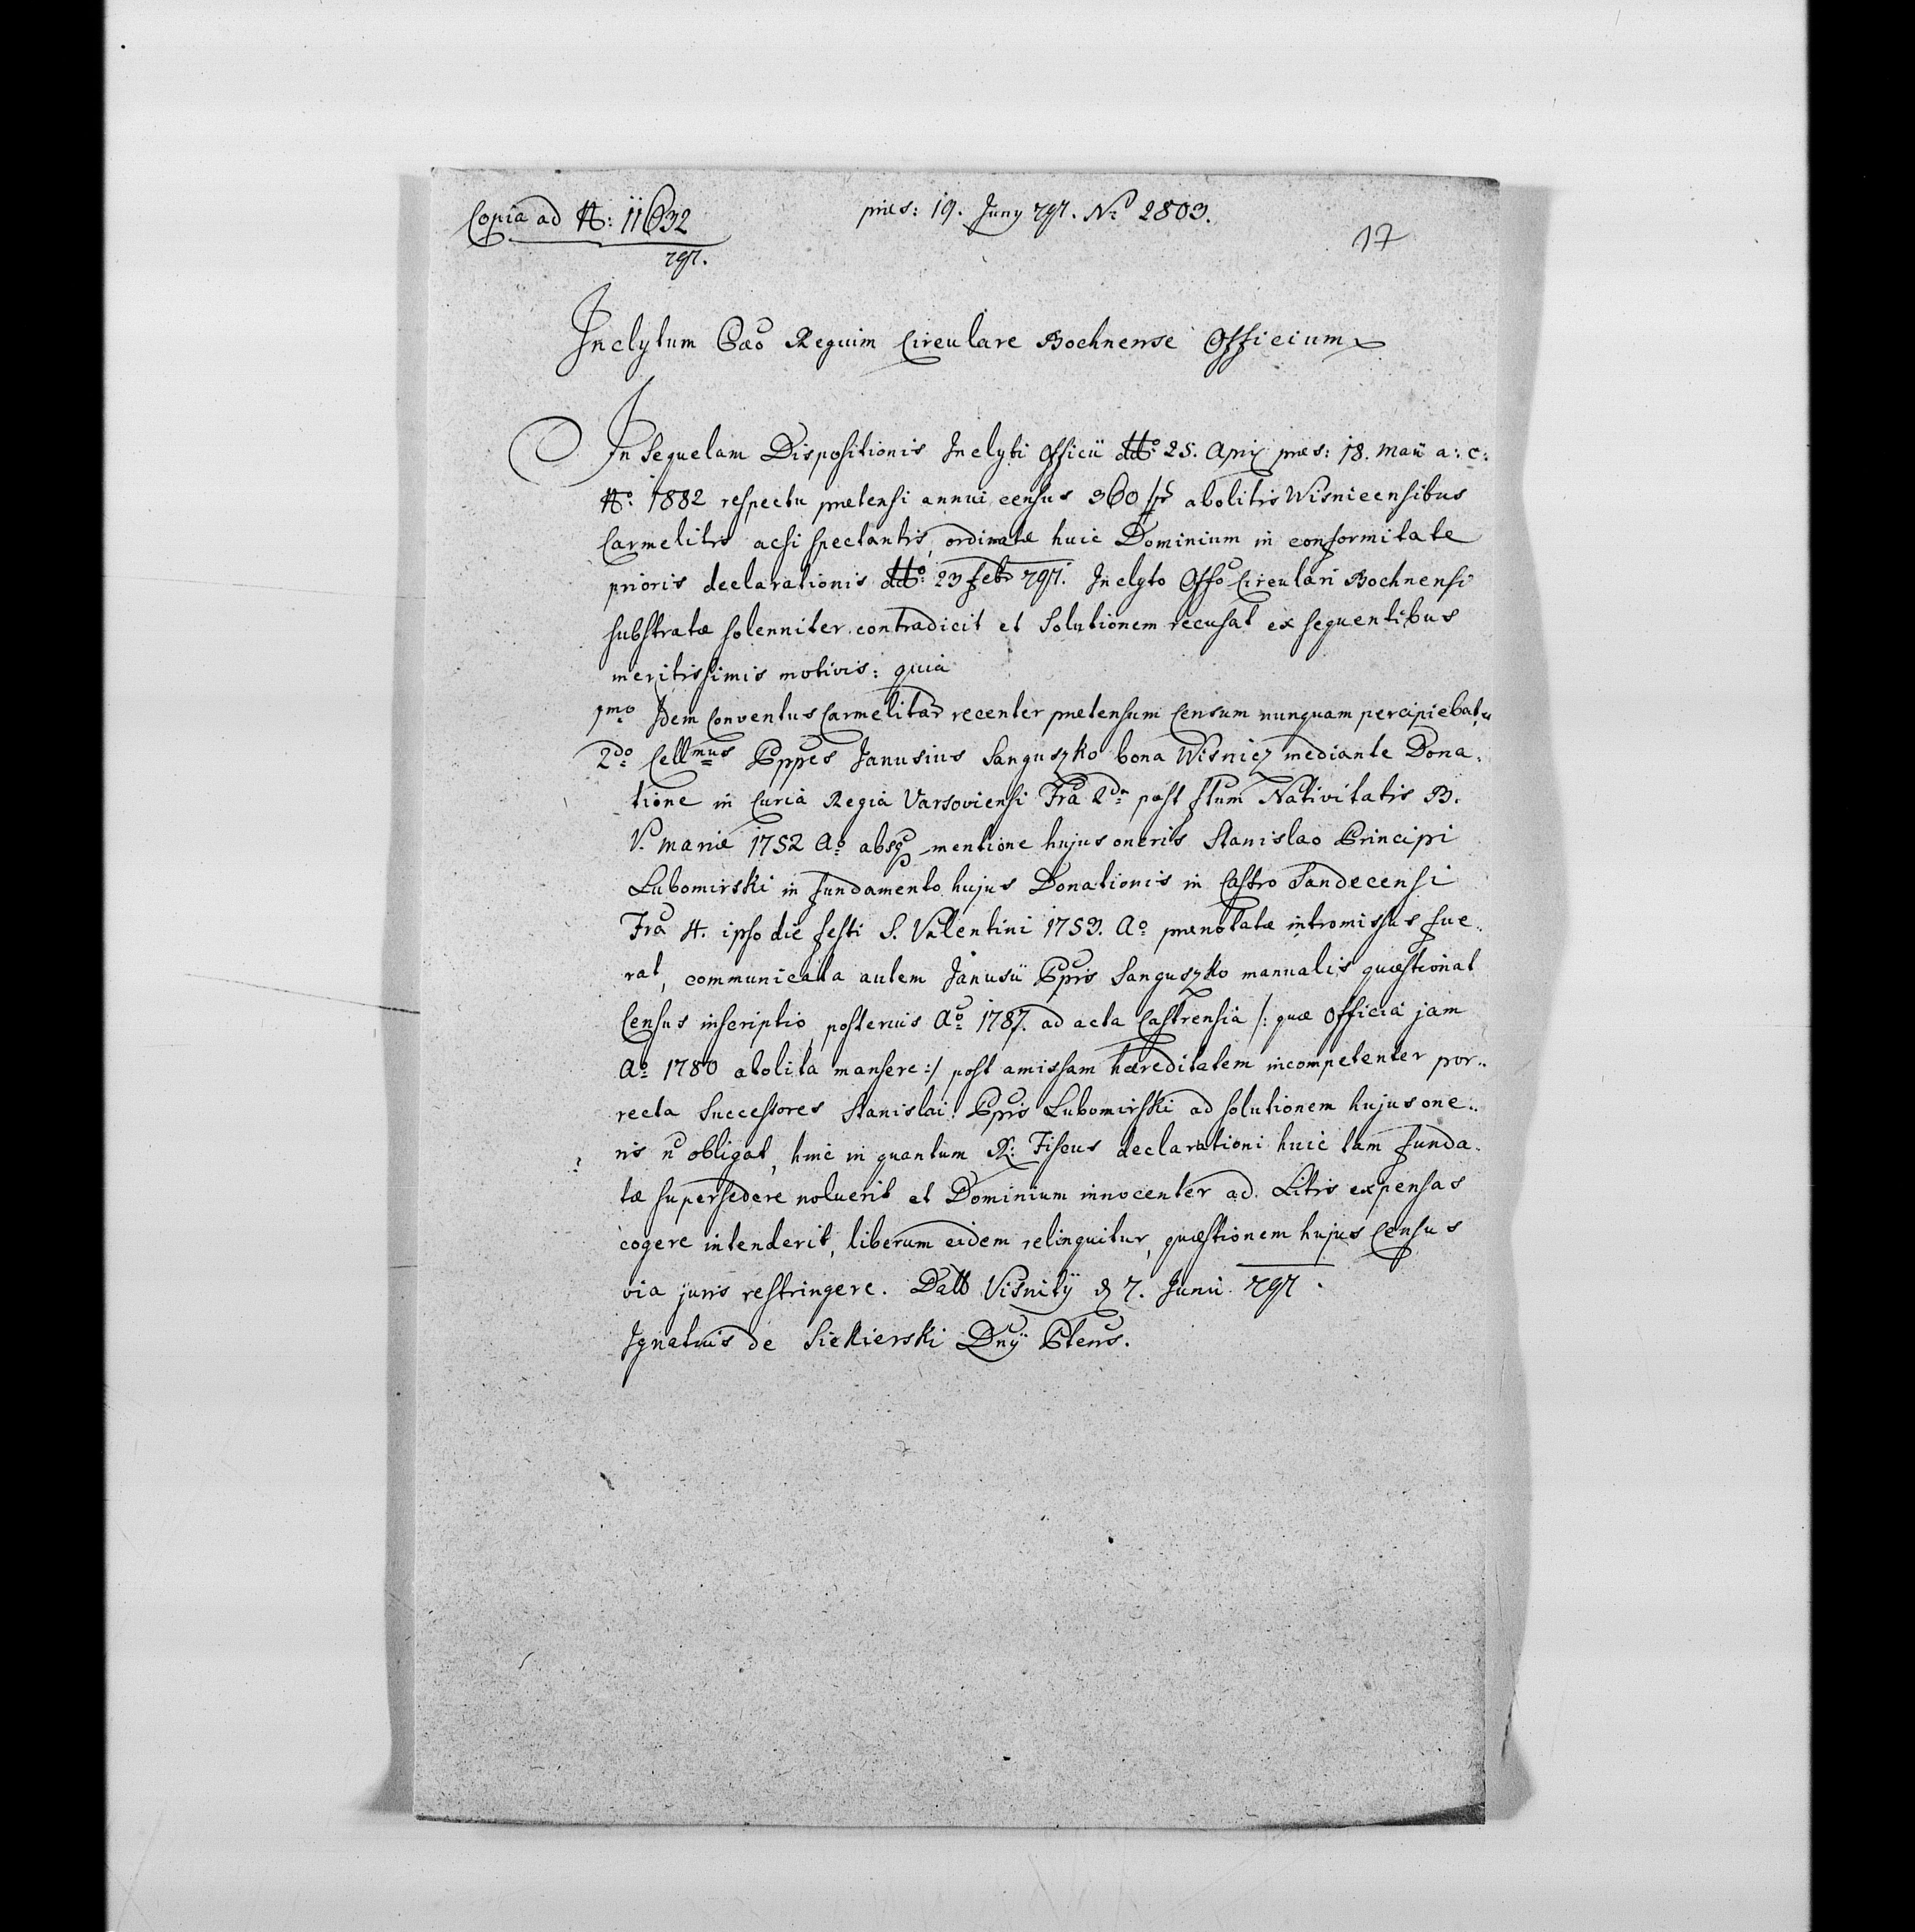 Copia ad N: 11632
797.
præs: 19. Juny 797. No 2803.
17
Inclytum Cæo Regium Circulare Bochnense Officium
In Sequelam Dispositionis Inclyti Officii ddto: 25. Apr: præs: 18. Maii a: c:
No: 1882 respectu prætensi annui census 360 abolitis Wisnicensibus
Carmelitis acsi spectantis, ordinatæ huic Dominium in conformitate
prioris declarationis ddto: 23 Feb 797. Inclyto Offo Circulari Bochnensi
substratæ solenniter contradicit et Solutionem recusat ex sequentibus
meritissimis motivis: quia
1mo Idem Conventus Carmelitar recenter prætensum Censum nunquam percipiebat,
2do Cellmus Pppes Janusius Sanguszko bona Wisnicz mediante Dona-
tione in Curia Regia Varsoviensi Fra 2da post ftum Nativitatis B.
V. Mariæ 1752 Ao absq mentione hujus oneris Stanislao Principi
Lubomirski in fundamento hujus Donationis in Castro Sandecensi
Fra 4. ipso die festi S. Valentini 1753. Ao prænotatæ intromissus fue-
rat, communicata autem Janusii Ppis Sanguszko manualis quæstionat
Census inscriptio, posterius Ao 1787. ad acta Castrensia /: quæ Officia jam
Ao 1780 abolita mansere :/ post amissam hæreditatem incompetenter por-
recta Successores Stanislai Ppis Lubomirski ad solutionem hujus one-
ris n obligat, hinc in quantum R: Fiscus declarationi huic tam funda-
tæ supersedere noluerit et Dominium innocenter ad Litis expensas
cogere intenderit, liberum eidem relinquitur, quæstionem hujus Census
via juris restringere. Datt Visnity d 7. Junii 797.
Ignatius de Siekierski Dnÿ Plens.